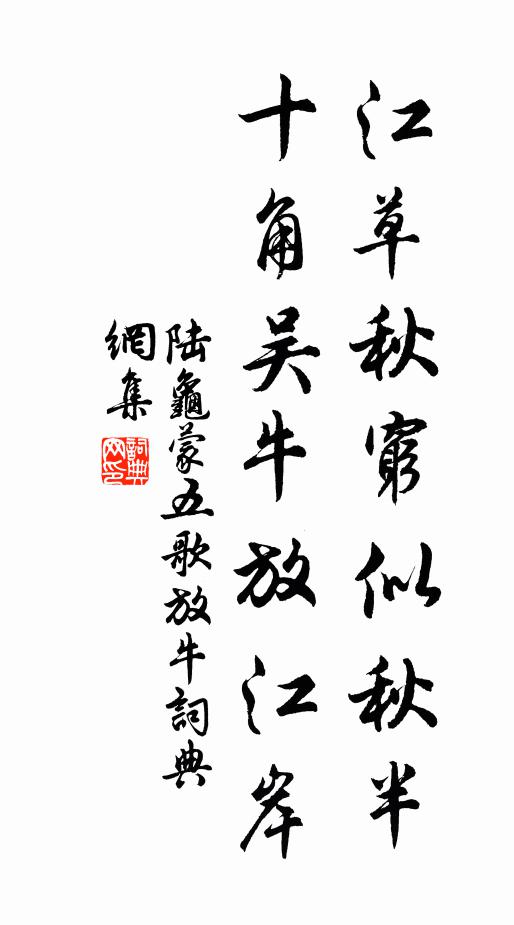 江草秋窮似秋半
十角吴牛放江岸
陆龜蒙五歌放牛詞典
網集
詞典
网印